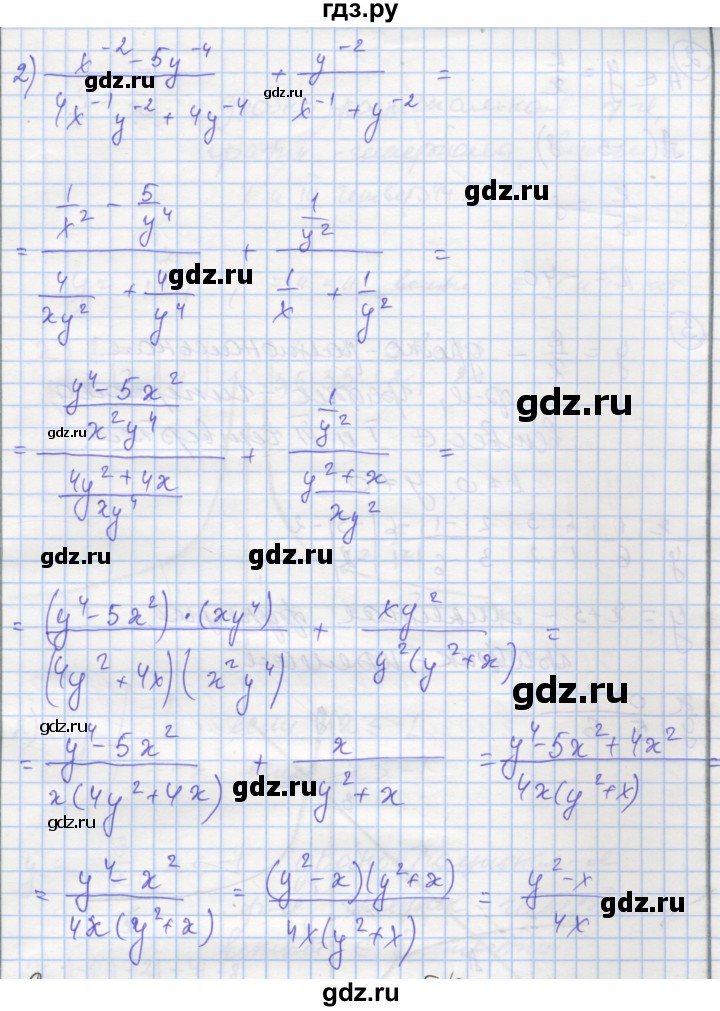 гдз.ру
2) \frac{x^{-2} - 5y^{-4}}{4x^{-1}y^{-2} + 4y^{-4}} + \frac{y^{-2}}{x^{-1} + y^{-2}} =
gdz.ru
gdz.ru
gdz.ru
gdz.ru
= \frac{\frac{1}{x^2} - \frac{5}{y^4}}{\frac{4}{xy^2} + \frac{4}{y^4}} + \frac{\frac{1}{y^2}}{\frac{1}{x} + \frac{1}{y^2}} =
gdz.ru
gdz.ru
gdz.ru
= \frac{\frac{y^4 - 5x^2}{x^2y^4}}{\frac{4y^2 + 4x}{xy^4}} + \frac{\frac{1}{y^2}}{\frac{y^2 + x}{xy^2}} =
gdz.ru
gdz.ru
= \frac{(y^4 - 5x^2) \cdot (xy^4)}{(4y^2 + 4x)(x^2y^4)} + \frac{xy^2}{y^2(y^2 + x)} =
gdz.ru
gdz.ru
= \frac{y^4 - 5x^2}{x(4y^2 + 4x)} + \frac{x}{y^2 + x} = \frac{y^4 - 5x^2 + 4x^2}{4x(y^2 + x)} =
gdz.ru
gdz.ru
= \frac{y^4 - x^2}{4x(y^2 + x)} = \frac{(y^2 - x)(y^2 + x)}{4x(y^2 + x)} = \frac{y^2 - x}{4x}
gdz.ru
gdz.ru
gdz.ru